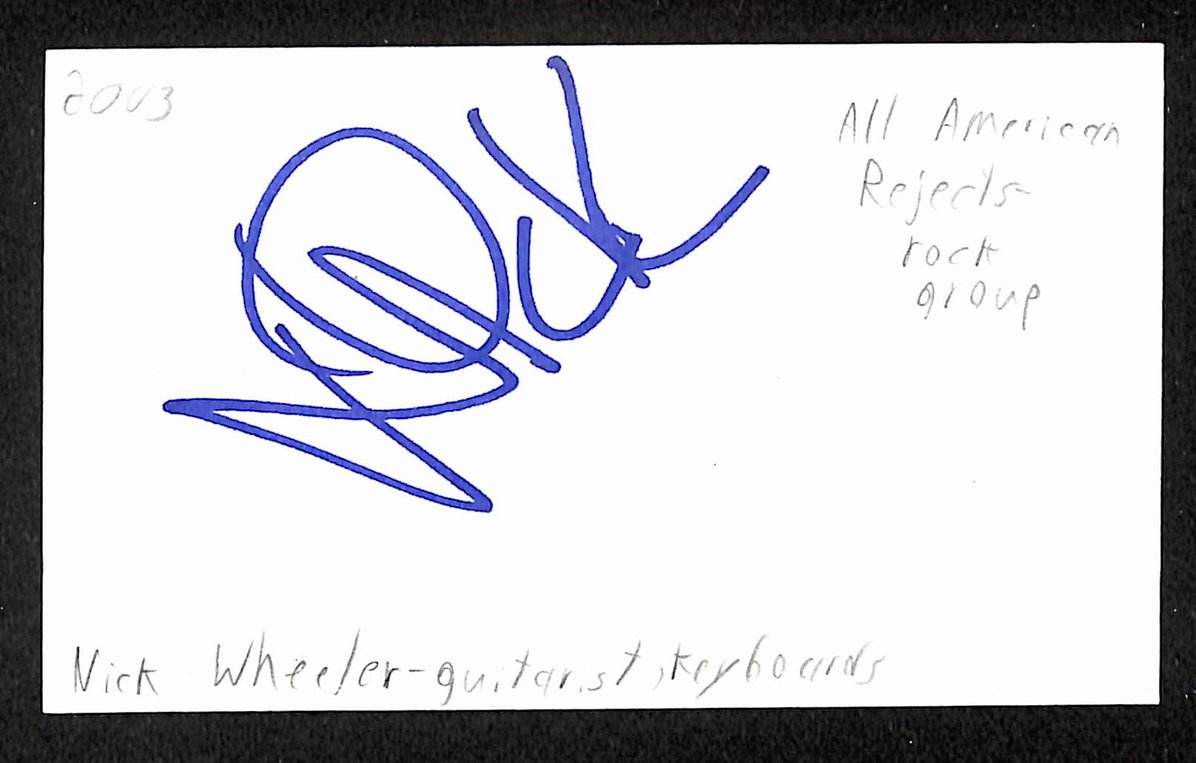 2003
All American
Rejects-
rock
group
Nick
Nick Wheeler-guitarist, keyboards